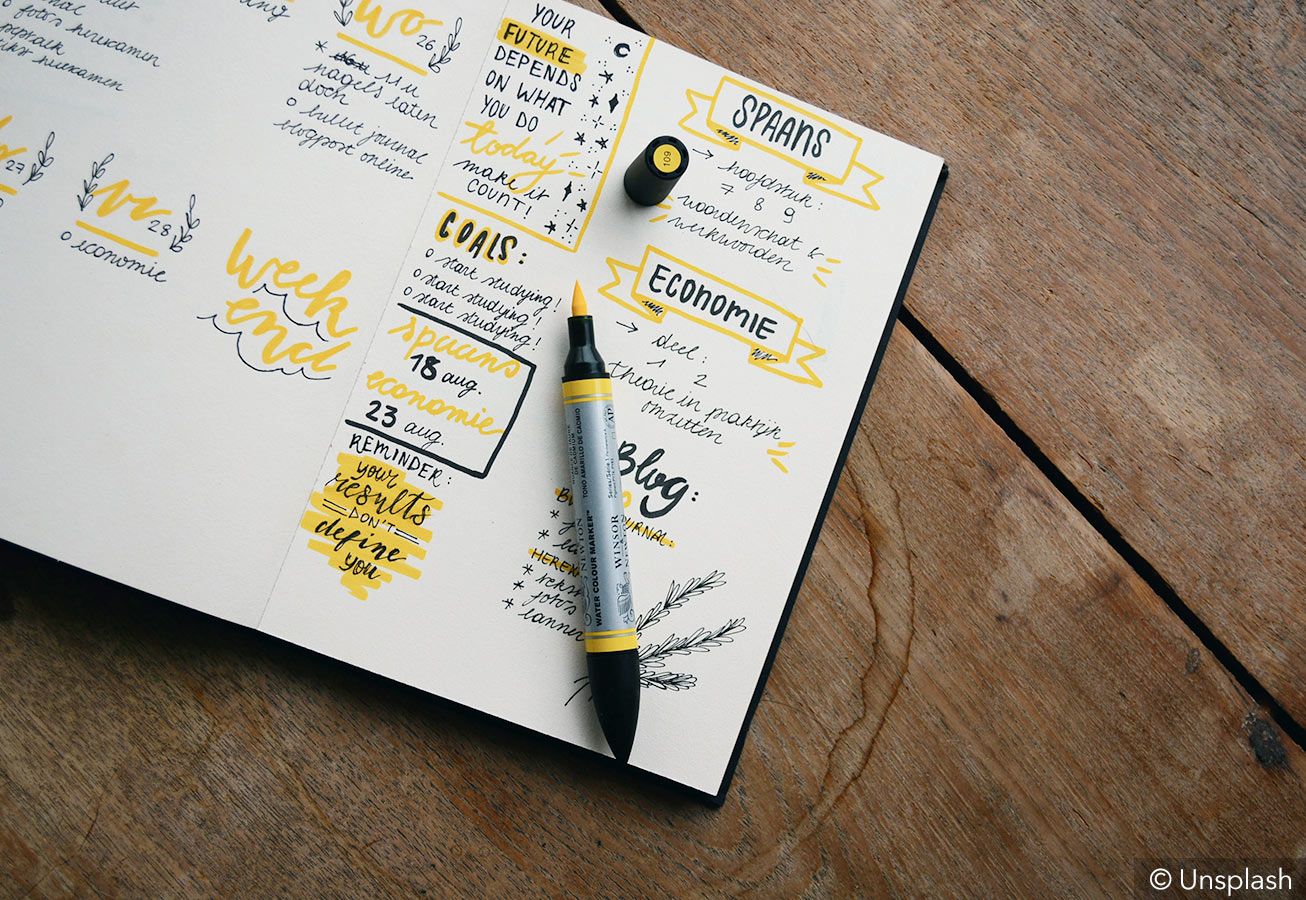 foto's huiekamen
huiekamen
wo
26
* 11 u
nagels laten
doen
o bullet journal
blogpost online
27
vr
28
o economie
week
end
YOUR
FUTURE
DEPENDS
ON WHAT
YOU DO
today
make it
COUNT!
GOALS:
o start studying!
o start studying!
o start studying!
spaans
18 aug.
economie
23 aug.
REMINDER:
your
results
DON'T
define
you
109
SPAANS
→ hoofdstuk:
7 8 9
woordenschat &
werkwoorden
ECONOMIE
→ deel:
1 2
theorie in praktijk
omzetten
Blog:
JOURNAL:
* foto's
* banner
TONO AMARILLO DE CADMIO
WATER COLOUR MARKER™
WINSOR
NEWTON
© Unsplash